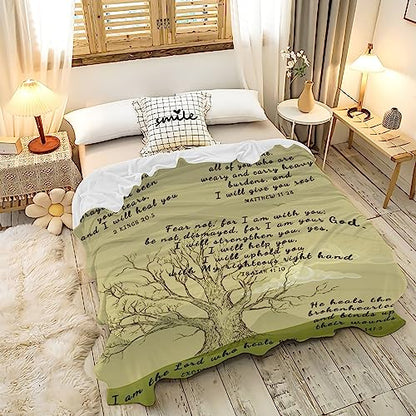 smile
seen
your tears
and I will heal you
2 KINGS 20:5
all of you who are
weary and carry heavy
burdens, and
I will give you rest
MATTHEW 11:28
Fear not, for I am with you;
be not dismayed, for I am your God.
I will strengthen you, yes,
I will help you.
I will uphold you
with My righteous right hand
ISAIAH 41:10
He heals the
brokenhearted
and binds up
their wounds
I am the Lord who heals